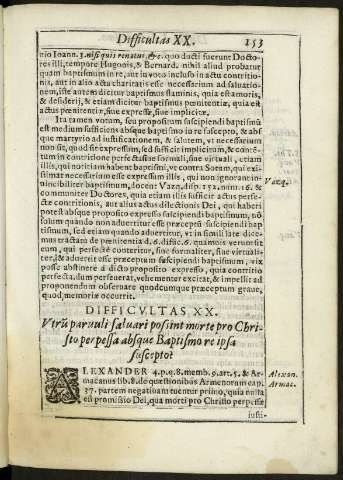 Difficultas XX.
153
nio Ioann. 3. nisi quis renatus, &c. quo ducti fuerunt Docto-
res illi, tempore Hugonis, & Bernard. nihil aliud probatur
quam baptismum in re, aut in voto incluso in actu contritio-
nis, aut in alio actu charitatis esse necessarium ad saluatio-
nem, iste autem dicitur baptismus flaminis, quia est amoris,
& desiderij, & etiam dicitur baptismus pœnitentiæ, quia est
actus pœnitentiæ, siue expresse, siue implicite.
Ita tamen votum, seu propositum suscipiendi baptismū
est medium sufficiens absque baptismo in re suscepto, & abs
que martyrio ad iustificationem, & salutem, vt necessarium
non sit, quod sit expressum, sed sufficit implicitum, & conté-
tum in contritione perfecta siue formali, siue virtuali, etiam
illis, qui notitiam habent baptismi, vt contra Sotum, qui exi-
stimat necessarium esse expressum illis, qui non ignorant in-
uincibiliter baptismum, docent Vazq. disp. 152. num. 16. &
communiter Doctores, quia etiam illis sufficit actus perfec-
tæ contritionis, aut alius actus dilectionis Dei, qui haberi
potest absque proposito expresso suscipiendi baptismum, nó
solum quando non aduertitur esse præceptū suscipiendi bap
tismum, sed etiam quando aduertitur, vt in simili late dice-
mus tractatu de pœnitentia d. 6. diffic. 6. quamuis verum sit
eum, qui perfectè conteritur, siue formaliter, siue virtuali-
ter, & aduertit esse præceptum suscipiendi baptismum, vix
posse abstinere à dicto proposito expresso, quia contritio
perfecta, dum perseuerat, vehementer excitat, & impellit ad
proponendum obseruare quodcumque præceptum graue,
quod memoriæ occurrit.
Vazq.
DIFFICVLTAS XX.
Vtrū paruuli saluari possint morte pro Chri-
sto perpessa absque Baptismo re ipsa
suscepto?
ALEXANDER 4. p. q. 8. memb. 9. art. 5. & Ar-
macanus lib. 8. de quæstionibus Armenorum cap.
37. partem negatiuam tuentur primo, quia nulla
est promissio Dei, qua morti pro Christo perpesse
Alexan.
Armac.
iusti-